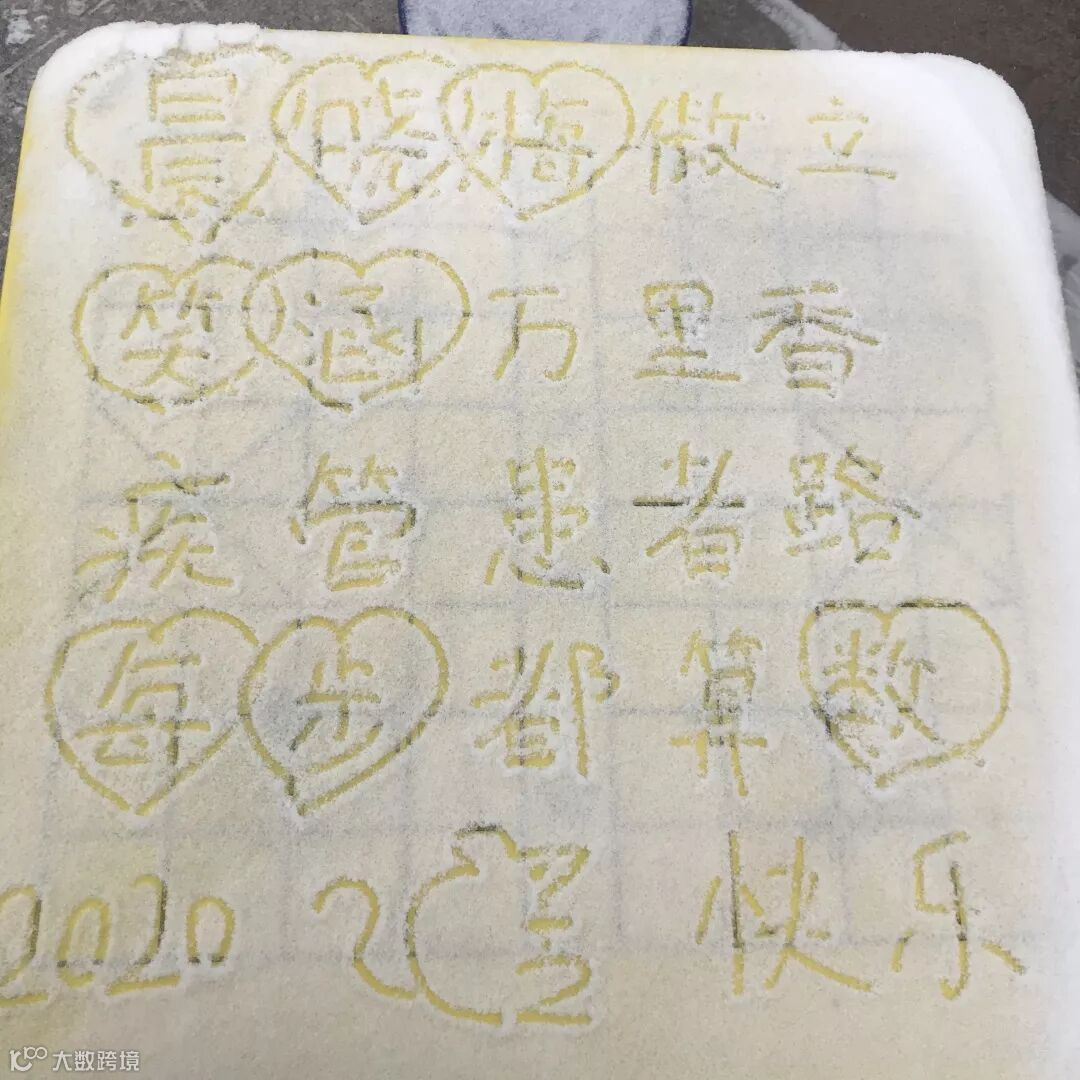 晨晓将傲立
笑涵万里香
疾管患者路
每步都算数
2020 里 快乐
大数跨境